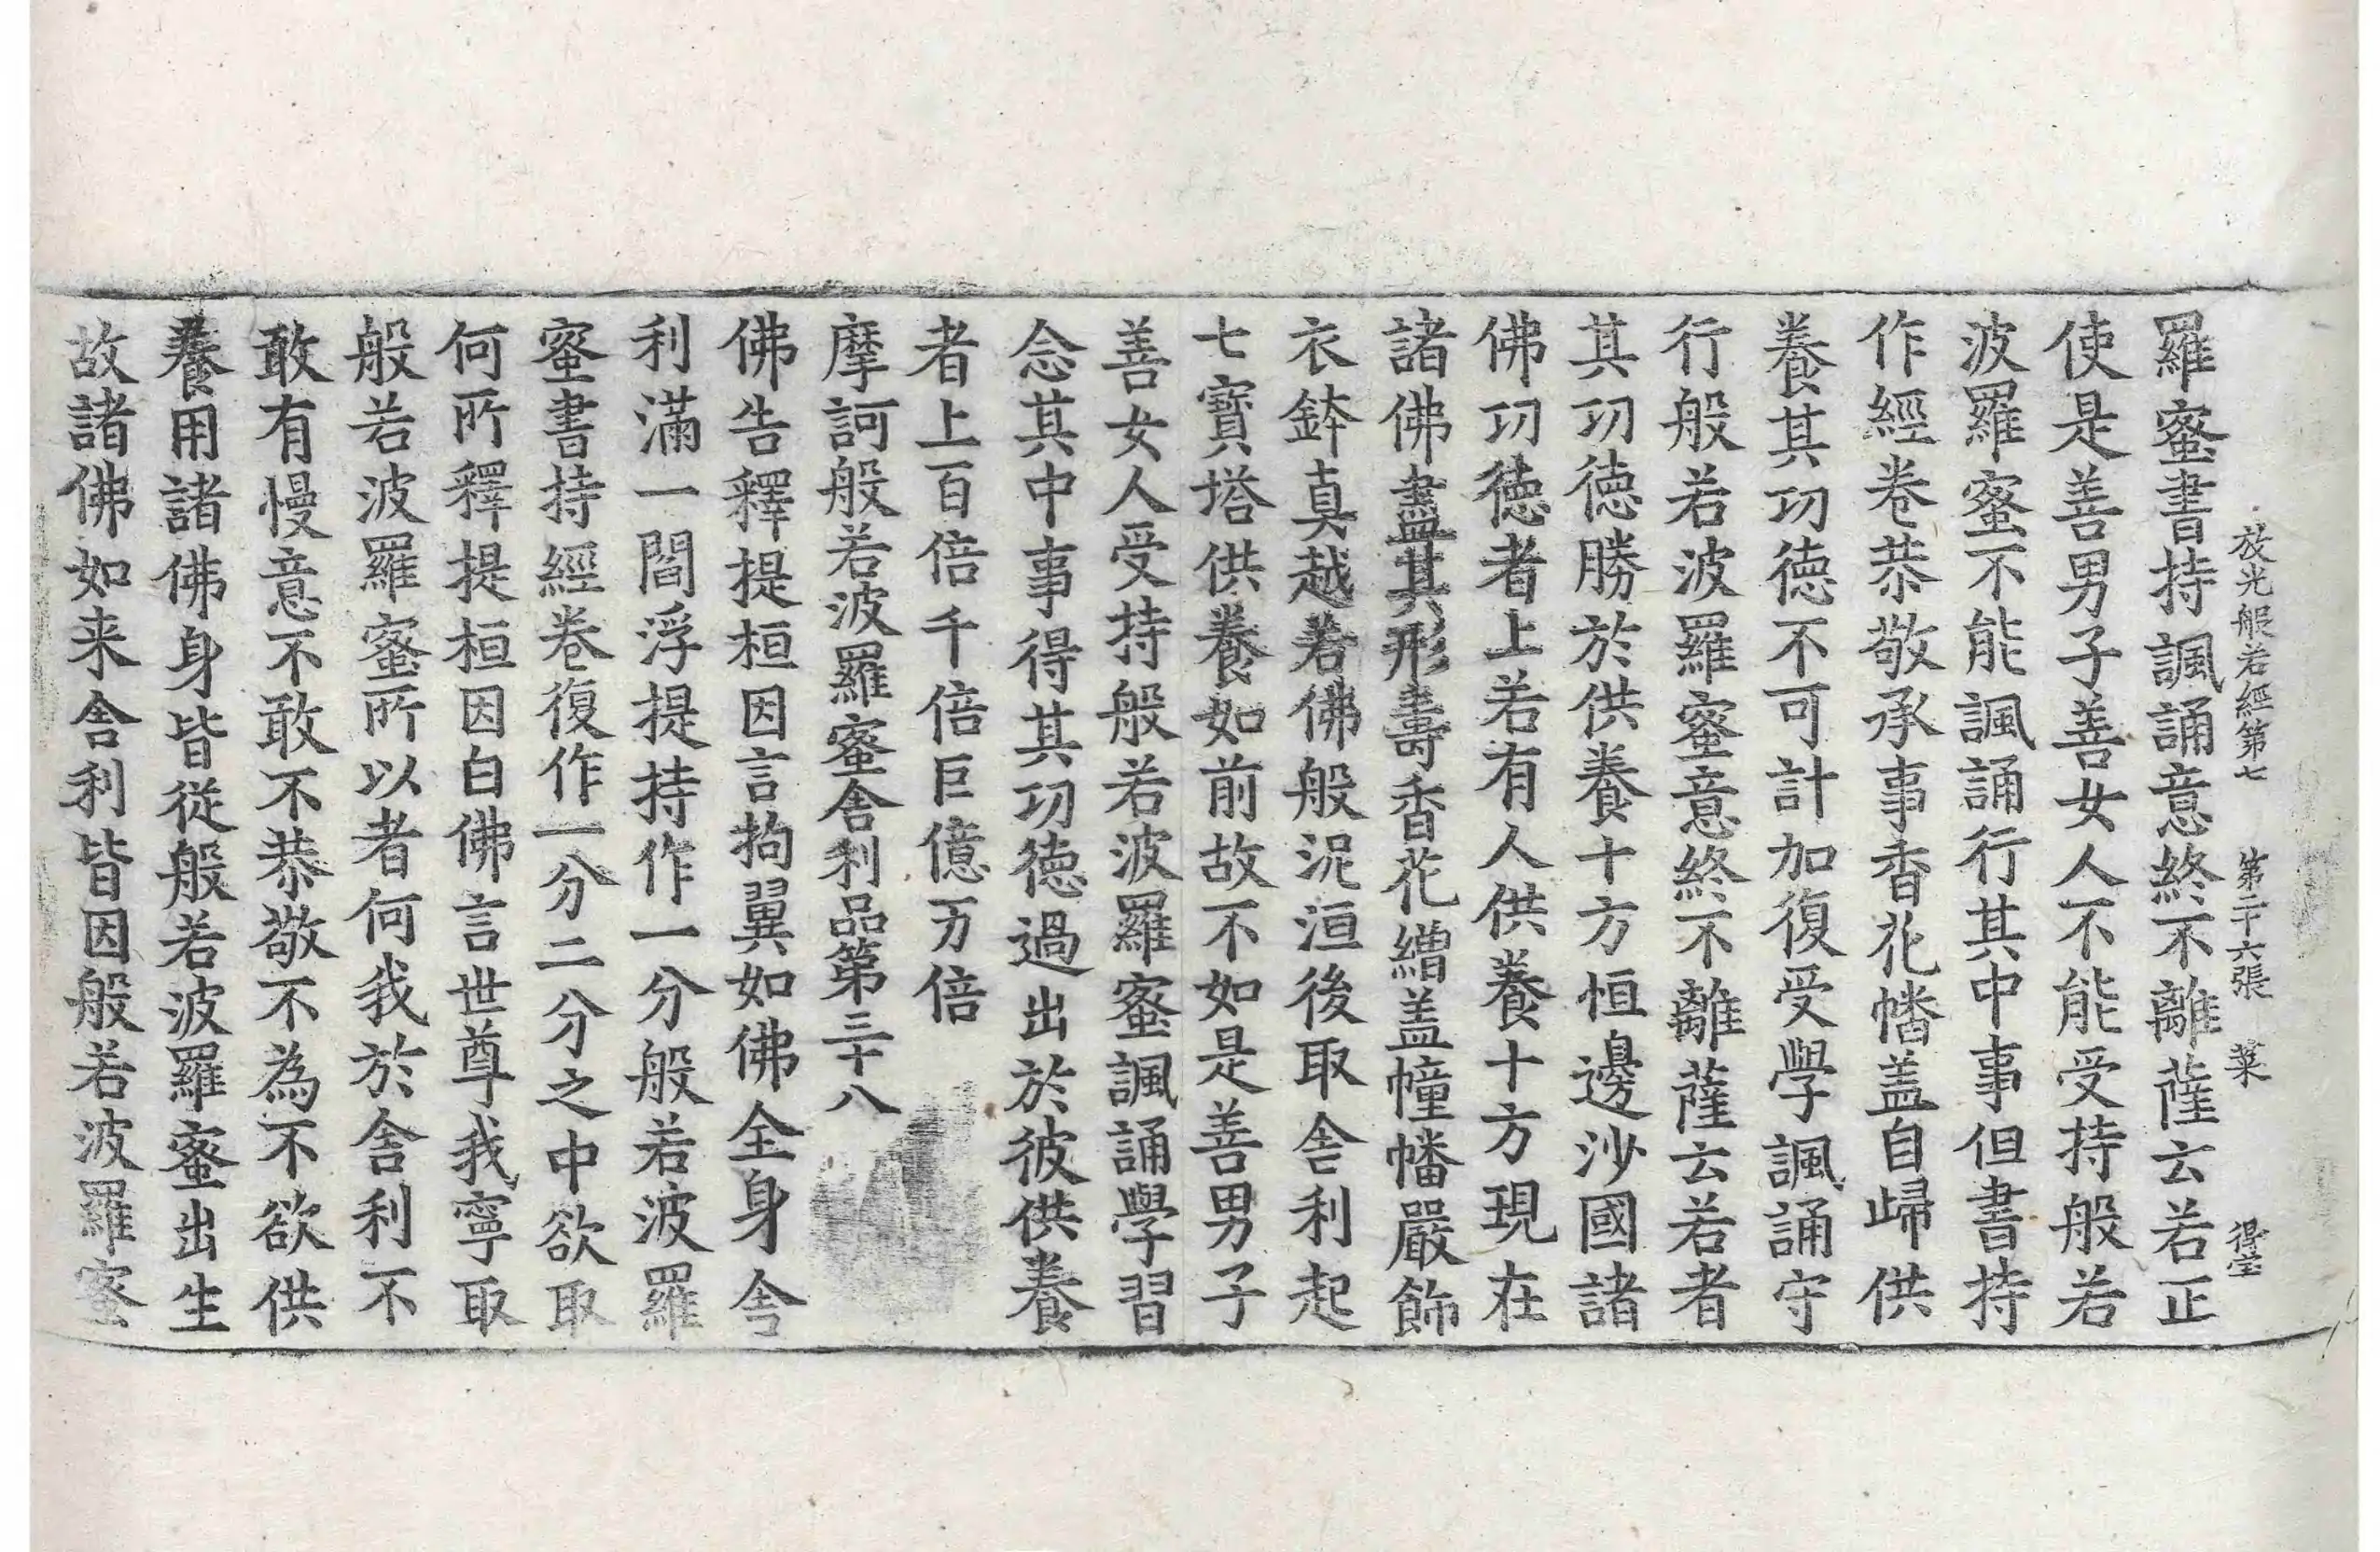 放光般若經第七 第二十六張 菜 得宝
羅蜜書持諷誦意終不離薩云若正
使是善男子善女人不能受持般若
波羅蜜不能諷誦行其中事但書持
作經卷恭敬承事香花幡盖自歸供
養其功德不可計加復受學諷誦守
行般若波羅蜜意終不離薩云若者
其功德勝於供養十方恒邊沙國諸
佛功德者上若有人供養十方現在
諸佛盡其形壽香花繒盖幢幡嚴飾
衣鉢真越若佛般泥洹後取舍利起
七寶塔供養如前故不如是善男子
善女人受持般若波羅蜜諷誦學習
念其中事得其功德過出於彼供養
者上百倍千倍巨億万倍
摩訶般若波羅蜜舍利品第三十八
佛告釋提桓因言拘翼如佛全身舍
利滿一閻浮提持作一分般若波羅
蜜書持經卷復作一分二分之中欲取
何所釋提桓因白佛言世尊我寧取
般若波羅蜜所以者何我於舍利不
敢有慢意不敢不恭敬不為不欲供
養用諸佛身皆從般若波羅蜜出生
故諸佛如来舍利皆因般若波羅蜜